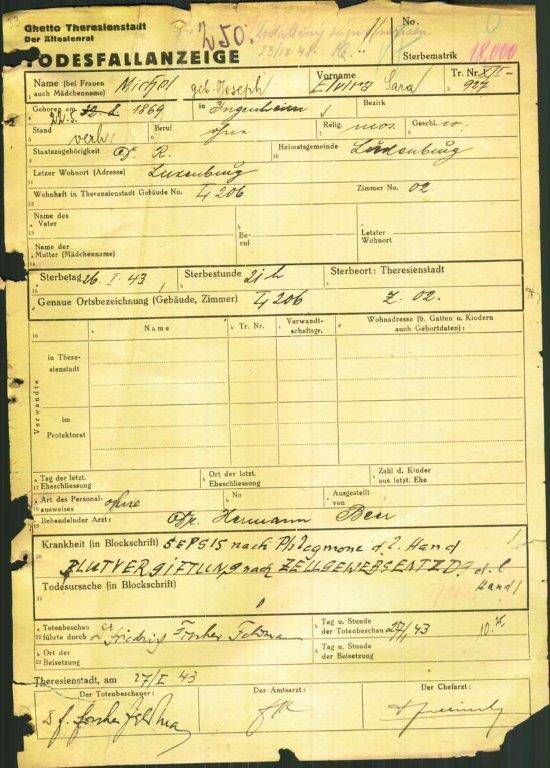 Ghetto Theresienstadt
Der Ältestenrat
250.
No.
TODESFALLANZEIGE
Sterbematrik 18,000
Name (bei Frauen auch Mädchenname) Michel geb. Joseph Vorname Elvira Sara Tr. Nr. XII- 927
Geboren am 22.5. 1869 in Ingenheim Bezirk
Stand verh. Beruf ohne Relig. mos. Geschl. w.
Staatszugehörigkeit D. R. Heimatsgemeinde Luxenburg
Letzer Wohnort (Adresse) Luxenburg
Wohnhaft in Theresienstadt Gebäude No. L 206 Zimmer No. 02.
Name des Vater Beruf Letzter Wohnort
Name der Mutter (Mädchenname)
Sterbetag 26. I. 43 Sterbestunde 21 h Sterbeort: Theresienstadt
Genaue Ortsbezeichnung (Gebäude, Zimmer) L 206 Z. 02.
Name Tr. Nr. Verwandtschaftsgr. Wohnadresse (b. Gatten u. Kindern auch Geburtdaten):
Verwandte
in Theresienstadt
im Protektorat
Tag der letzt. Eheschliessung Ort der letzt. Eheschliessung Zahl d. Kinder aus letzt. Ehe
Art des Personalausweises ohne No Ausgestellt von
Behandelnder Arzt: Dr. Hermann Beer
Krankheit (in Blockschrift) SEPSIS nach Phlegmone d. l. Hand
BLUTVERGIFTUNG nach ZELLGEWEBSENTZDG. d. l. Hand
Todesursache (in Blockschrift)
Totenbeschau führte durch Tag u. Stunde der Totenbeschau 27/I 43
Ort der Beisetzung Tag u. Stunde der Beisetzung
Theresienstadt, am 27/I 43
Der Totenbeschauer: Der Amtsarzt: Der Chefarzt: